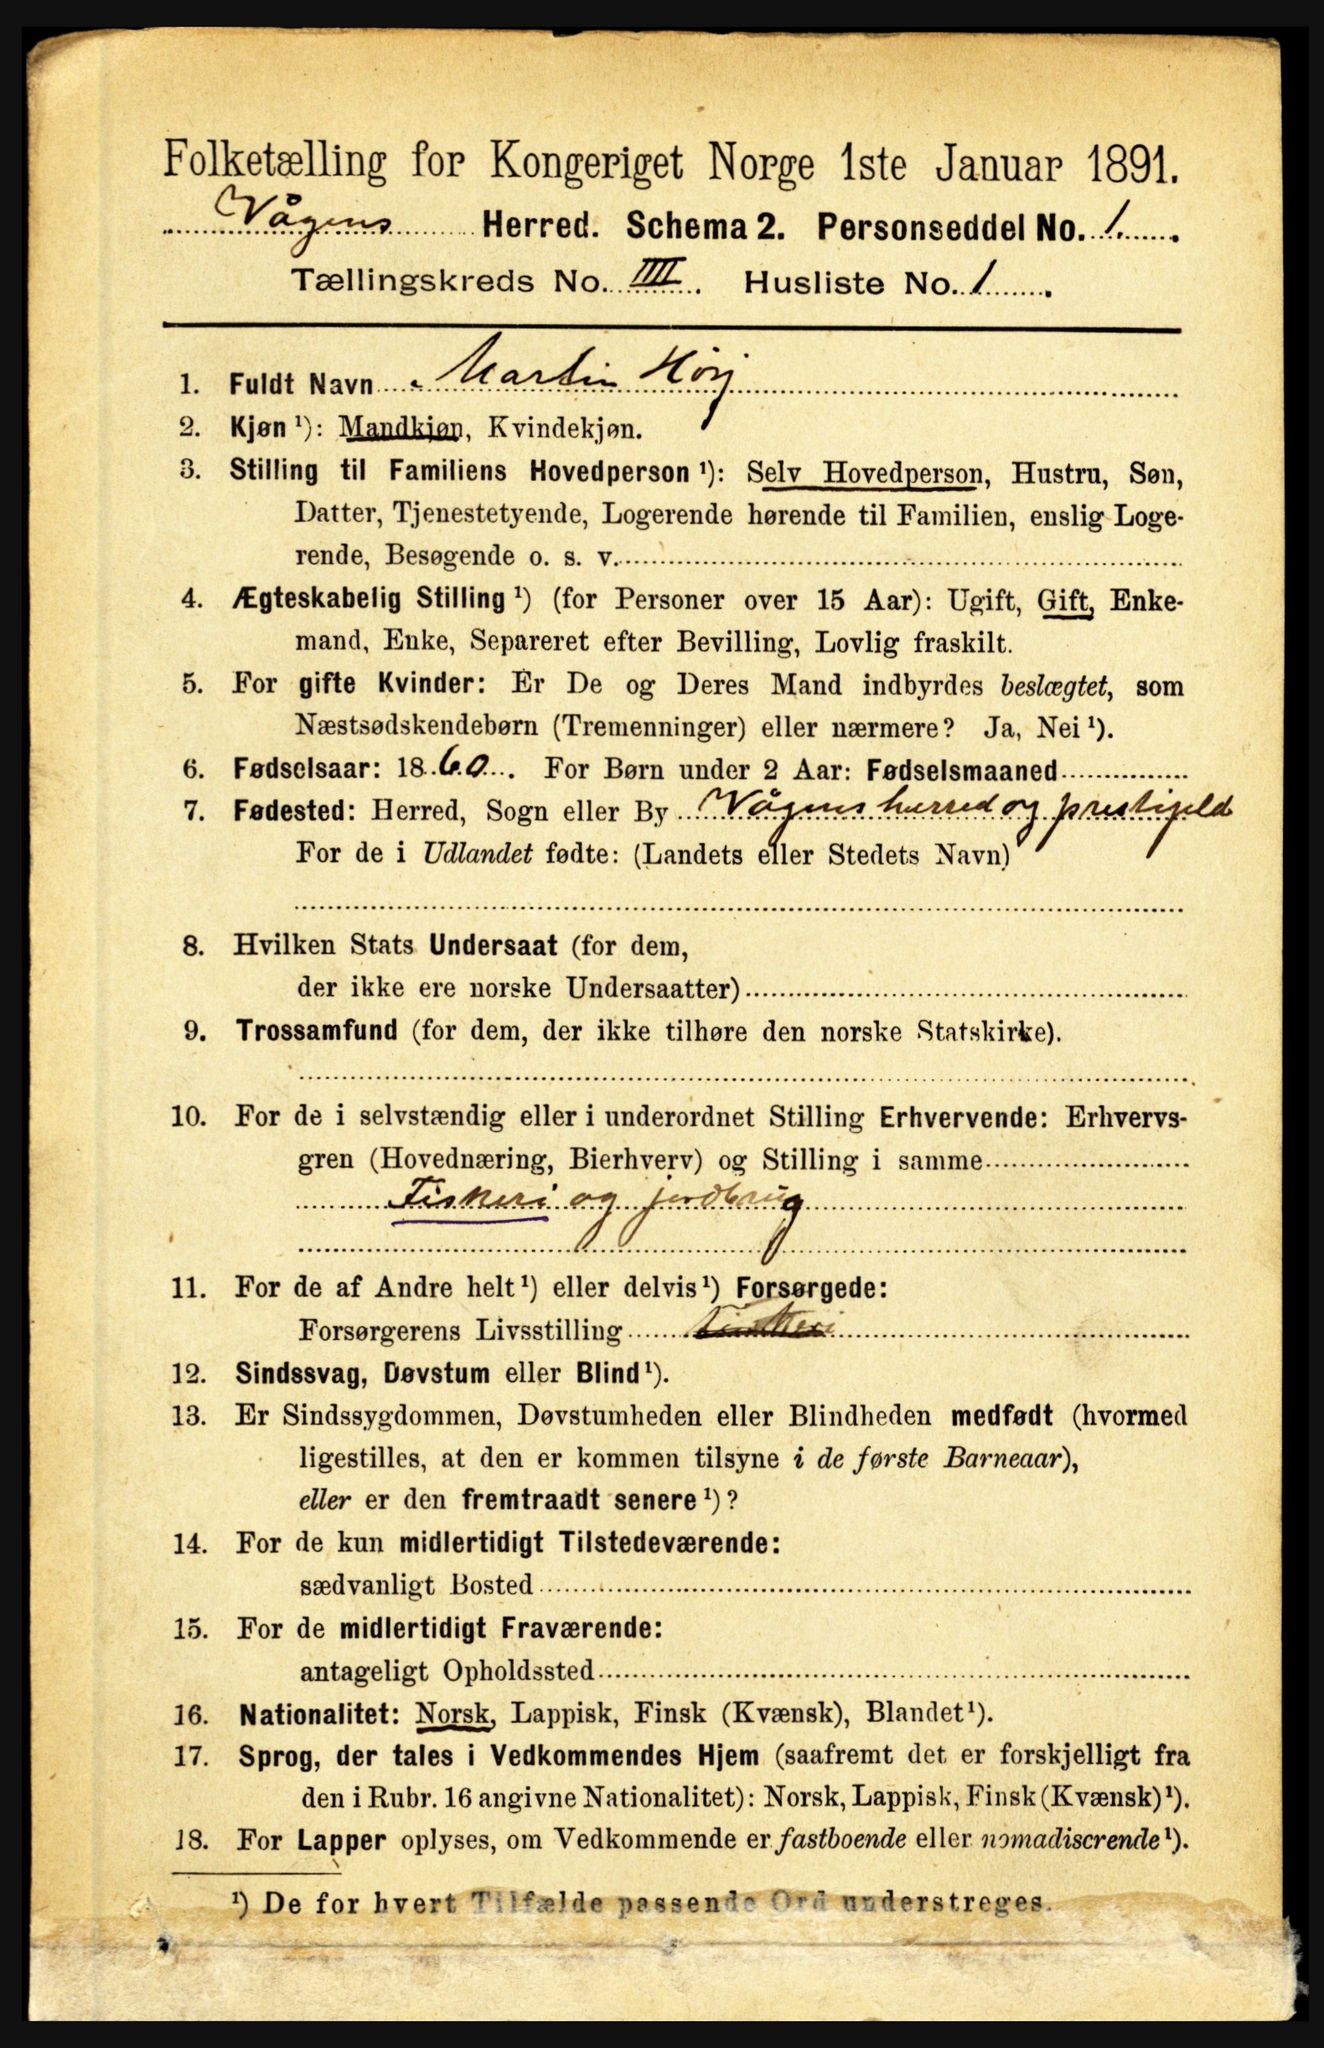 Folketælling for Kongeriget Norge 1ste Januar 1891.
Vågens Herred. Schema 2. Personseddel No. 1.
Tællingskreds No. IIII. Husliste No. 1.
1. Fuldt Navn Martin Høy
2. Kjøn ¹): Mandkjøn, Kvindekjøn.
3. Stilling til Familiens Hovedperson ¹): Selv Hovedperson, Hustru, Søn,
Datter, Tjenestetyende, Logerende hørende til Familien, enslig Loge-
rende, Besøgende o. s. v.
4. Ægteskabelig Stilling ¹) (for Personer over 15 Aar): Ugift, Gift, Enke-
mand, Enke, Separeret efter Bevilling, Lovlig fraskilt.
5. For gifte Kvinder: Er De og Deres Mand indbyrdes beslægtet, som
Næstsødskendebørn (Tremenninger) eller nærmere? Ja, Nei ¹).
6. Fødselsaar: 1860. For Børn under 2 Aar: Fødselsmaaned
7. Fødested: Herred, Sogn eller By Vågens herred og prestigeld
For de i Udlandet fødte: (Landets eller Stedets Navn)
8. Hvilken Stats Undersaat (for dem,
der ikke ere norske Undersaatter)
9. Trossamfund (for dem, der ikke tilhøre den norske Statskirke).
10. For de i selvstændig eller i underordnet Stilling Erhvervende: Erhvervs-
gren (Hovednæring, Bierhverv) og Stilling i samme
Fiskeri og jordbrug
11. For de af Andre helt ¹) eller delvis ¹) Forsørgede:
Forsørgerens Livsstilling Fiskeri
12. Sindssvag, Døvstum eller Blind ¹).
13. Er Sindssygdommen, Døvstumheden eller Blindheden medfødt (hvormed
ligestilles, at den er kommen tilsyne i de første Barneaar),
eller er den fremtraadt senere ¹)?
14. For de kun midlertidigt Tilstedeværende:
sædvanligt Bosted
15. For de midlertidigt Fraværende:
antageligt Opholdssted
16. Nationalitet: Norsk, Lappisk, Finsk (Kvænsk), Blandet ¹).
17. Sprog, der tales i Vedkommendes Hjem (saafremt det er forskjelligt fra
den i Rubr. 16 angivne Nationalitet): Norsk, Lappisk, Finsk (Kvænsk) ¹).
18. For Lapper oplyses, om Vedkommende er fastboende eller nomadiserende ¹).
¹) De for hvert Tilfælde passende Ord understreges.